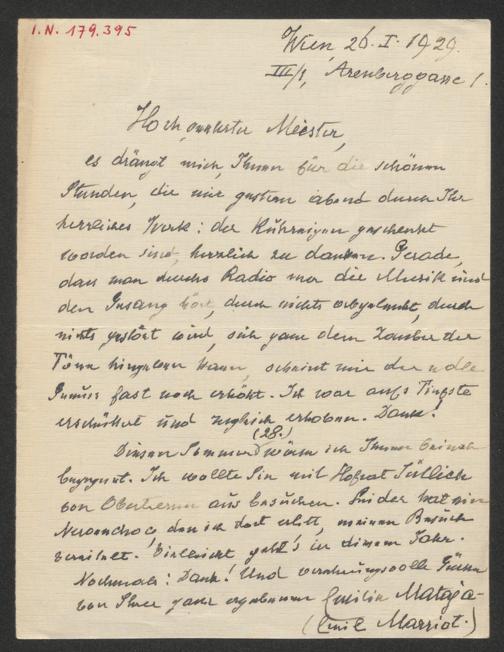 I.N. 179.395
Wien, 26. I. 1929.
III/1, Arenberggasse 1.
Hochverehrter Meister,
es drängt mich, Ihnen für die schönen
Stunden, die mir gestern abend durch Ihr
herrliches Werk: der Kuhreigen geschenkt
worden sind, herzlich zu danken. Gerade,
dass man durchs Radio nur die Musik und
den Gesang hört, durch nichts abgelenkt, durch
nichts gestört wird, sich ganz dem Zauber der
Töne hingeben kann, scheint mir der edle
Genuss fast noch erhöht. Ich war aufs Tiefste
erschüttert und zugleich erhoben. Dank!
Diesen Sommer (28.) wäre ich Ihnen beinah
begegnet. Ich wollte Sie mit Hofrat
von Obertressen aus besuchen. Leider hat ein
Nervenchoc, den ich dort erlitt, meinen Besuch
vereitelt. Vielleicht geht's in diesem Jahr.
Nochmals: Dank! Und verehrungsvolle Grüsse
von Ihrer ganz ergebenen Emilie Mataja-
(Emil Marriot.)